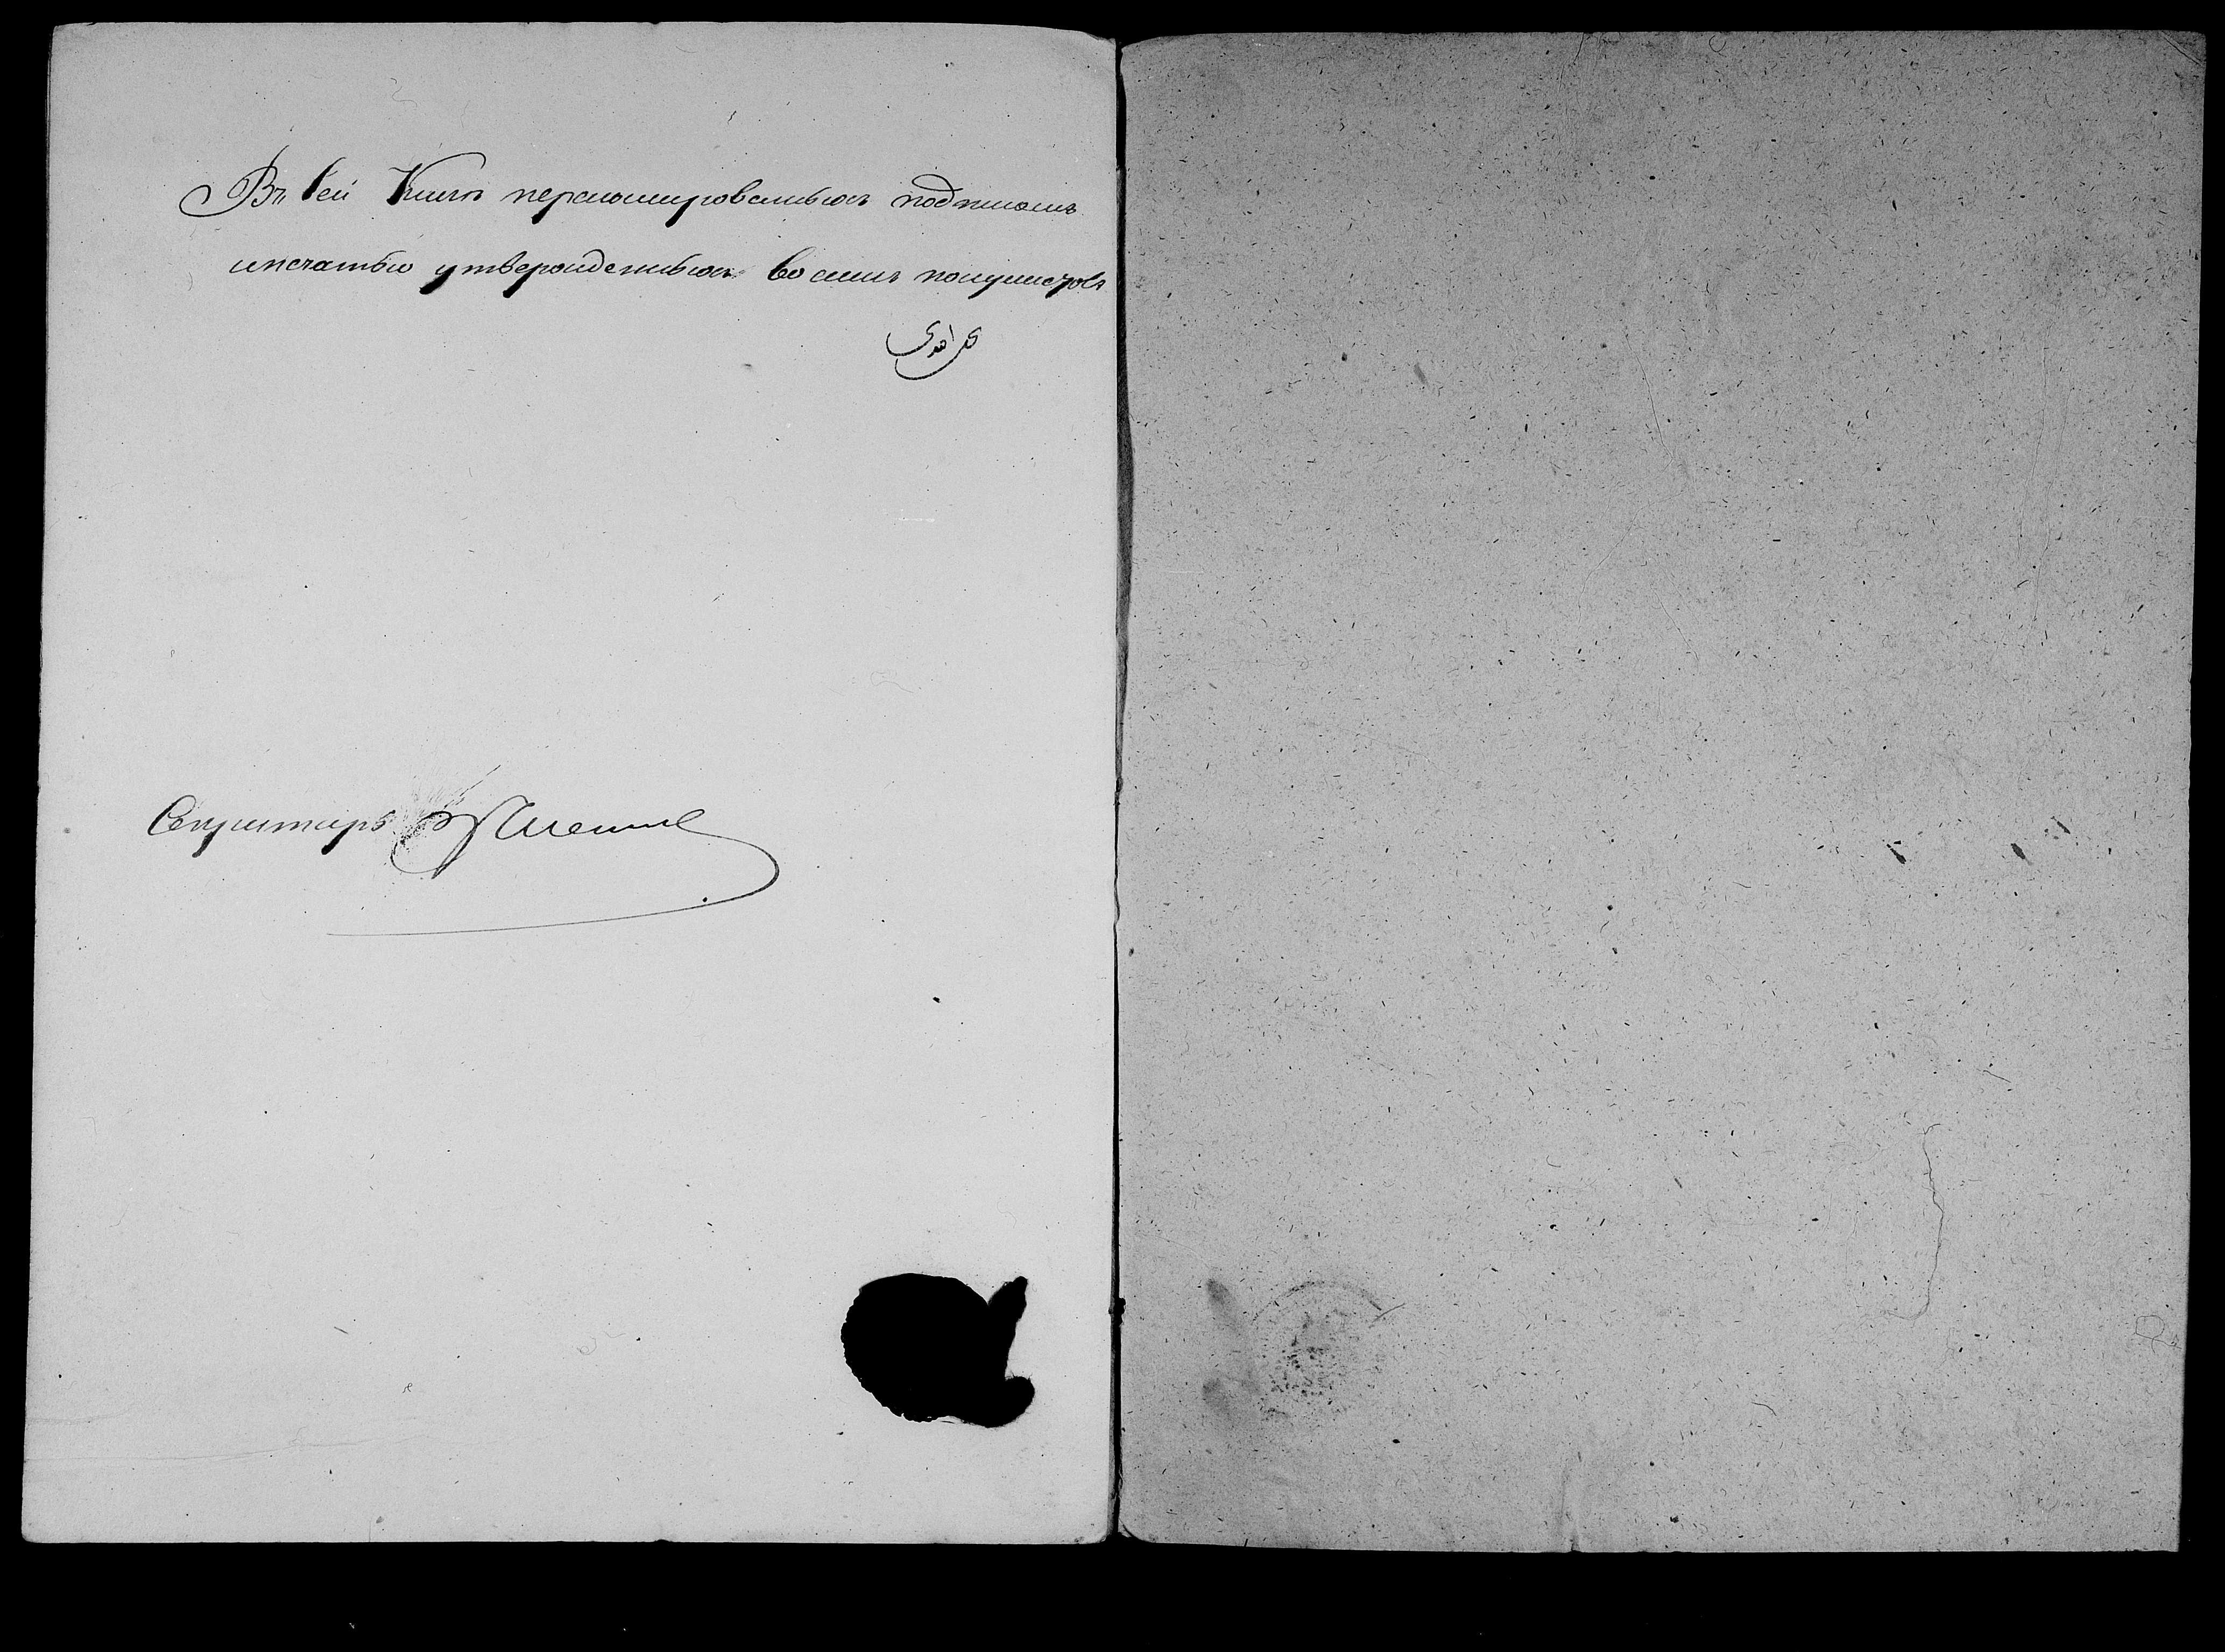 Въ сей Книге перенумерованныхъ подписомъ
и печатью утвержденныхъ восемь полулистовъ
Секретарь